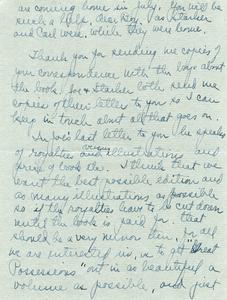 as coming home in July. You will be
such a help, dear Roy, as Stanker
and Carl were, while they were home.
Thank you for sending me copies of
your correspondence with the boys about
the book. Joe & Stanker both send me
copies of their letters to you so I can
keep in touch about all that goes on.
In Joe's last letter to you he speaks
of royalties every illustrations and
price of book etc. I think that we
want the best possible edition and
as many illustrations as possible
so if the royalties have to be cut down
until the book is paid for, that
should be a very minor item, for all
we are interested in, is to get "Great
Possessions" out in as beautiful a
volume as possible, and just